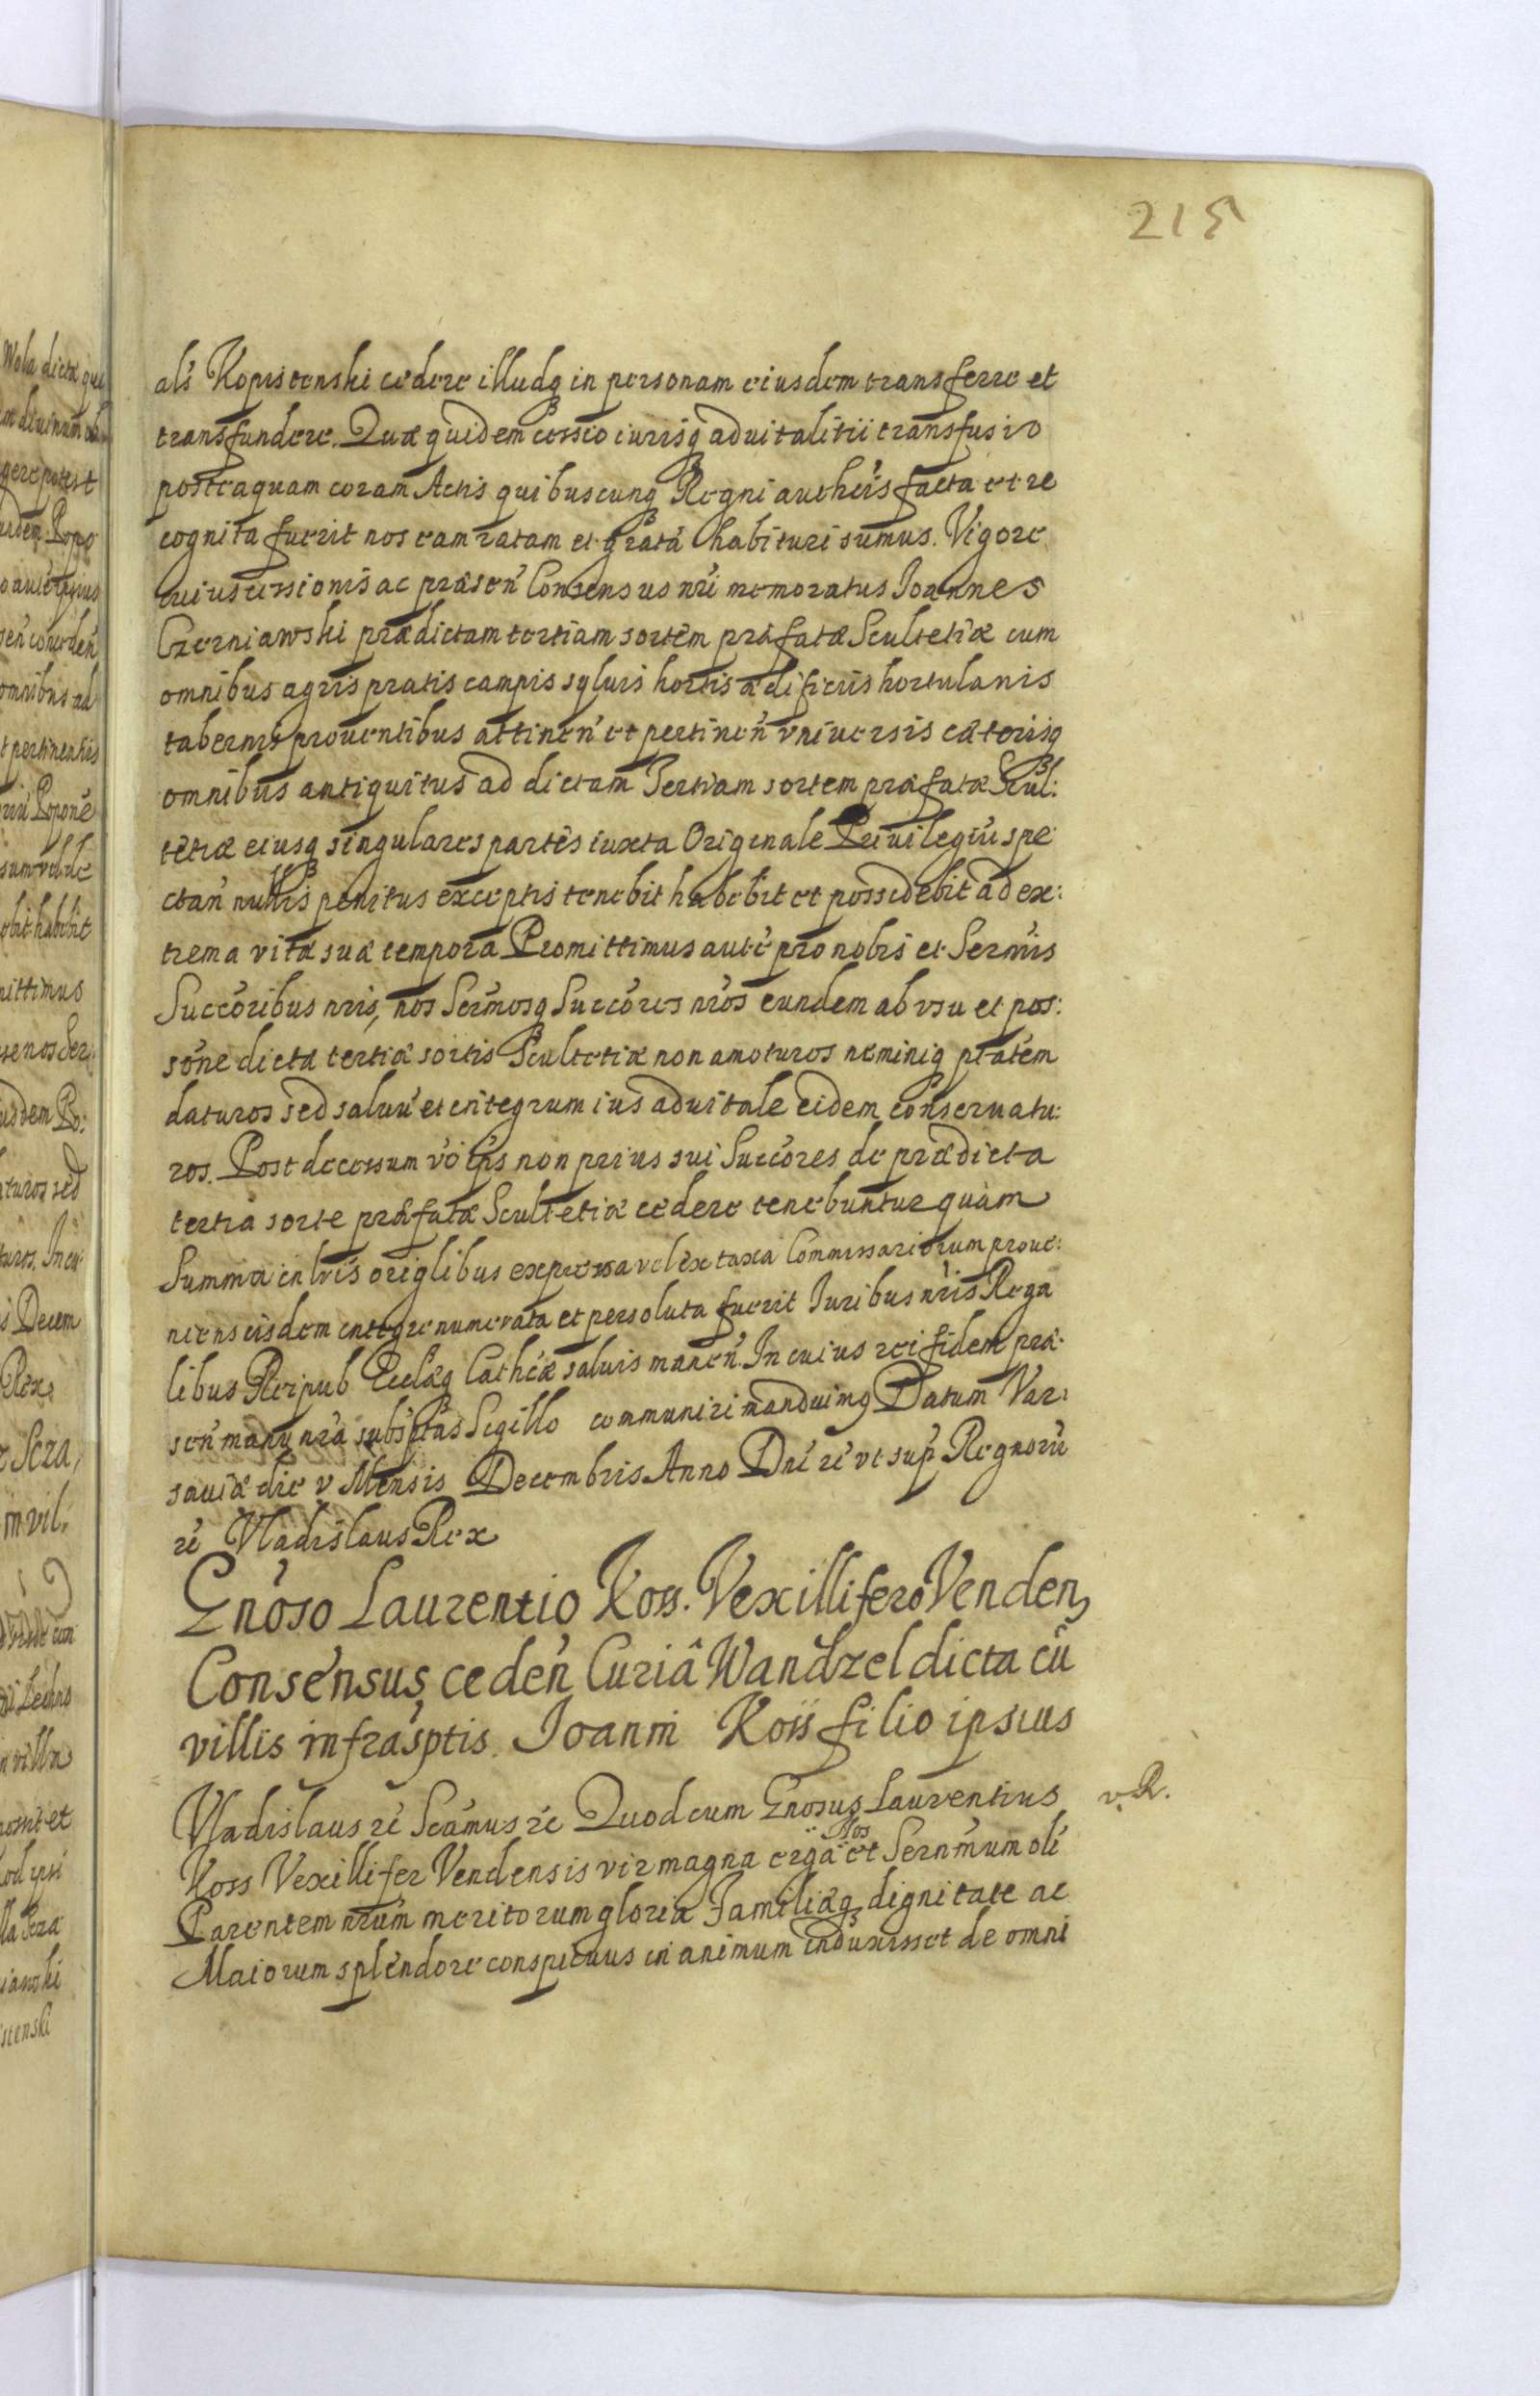 215
als Kopistenski cedere illudq in personam eiusdem transferre et
transfundere. Quæ quidem cessio iurisq aduitalitii transfusio
posteaquam coram Actis quibuscunq Regni autheis facta et re
cognita fuerit nos eam ratam et gratã habituri sumus. Vigore
cuius cessionis ac præsen Consensus nri memoratus Joannes
Czerniawski prædictam tertiam sortem præfatæ Scultetiæ cum
omnibus agris pratis campis syluis hortis ædificiis hortulanis
tabernis prouentibus attinen et pertinen vniuersis cæterisq
omnibus antiquitus ad dictam Tertiam sortem præfatæ Scul:
tetiæ eiusq singulares partes iuxta Originale Priuilegiũ spe
ctan nullis penitus exceptis tenebit habebit et possidebit ad ex:
trema vitæ suæ tempora Promittimus autẽ pro nobis et Sermis
Succoribus nris, nos Sermosq Succores nros eundem ab vsu et pos:
sone dictæ tertiæ sortis Scultetiæ non amoturos neminiq ptatem
daturos sed saluũ et integrum ius aduitale eidem conseruatu:
ros. Post decessum vo ips non prius sui Succores de prædicta
tertia sorte præfatæ Scultetiæ cedere tenebuntur quàm
Summa in lris origlibus expressa vel ex taxa Commissariorum proue:
niens eisdem integre numerata et persoluta fuerit Juribus nris Rega
libus Reipub Ecclæq Cathcæ saluis manen. In cuius rei fidem præ:
sen manu nra subsptas Sigillo communiri manduimq Datum Var:
sauiæ die v Mensis Decembris Anno Dni rc vt sup Regnorũ
rc Vladislaus Rex
Gnoso Laurentio Koss. Vexillifero Venden,
Consensus ceden Curiâ Wandzel dicta cũ
villis infrasptis. Joanni Koss filio ipsius
Vladislaus rc Scamus rc Quod cum Gnosus Laurentius
v. R.
Nos
Koss Vexillifer Vendensis vir magna erga et Sernmum oli
Parentem nrum meritorum gloria Familiæq dignitate ac
Maiorum splendore conspicuus in animum induxisset de omni